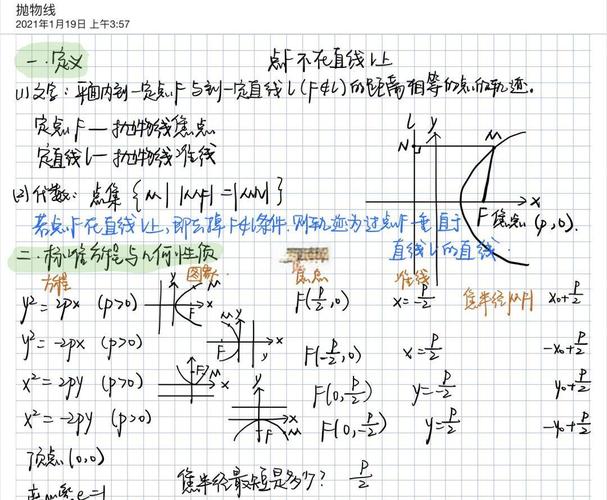 抛物线
2021年1月19日 上午3:57
一.定义
点F不在直线l上
(1)文字：平面内到一定点F与到一定直线l(F∉l)的距离相等的点的轨迹。
定点F—抛物线焦点
定直线l—抛物线准线
(2)代数：点集{M||MF|=|MN|}
l y
N M
x
F 焦点(p,0).
若点F在直线l上,即去掉F∉l条件.则轨迹为过点F垂直于
直线l的直线.
二.标准方程与几何性质
方程 图象 焦点 准线 焦半径|MF| x₀+p/2
y²=2px (p>0) y M F x F(p/2,0) x=-p/2
y²=-2px (p>0) M F x y F(-p/2,0) x=p/2 -x₀+p/2
x²=2py (p>0) y F M x F(0,p/2) y=-p/2 y₀+p/2
x²=-2py (p>0) y x F M F(0,p/2) y=p/2 -y₀+p/2
顶点(0,0)
焦半径最短是多少? p/2
离心率e=1